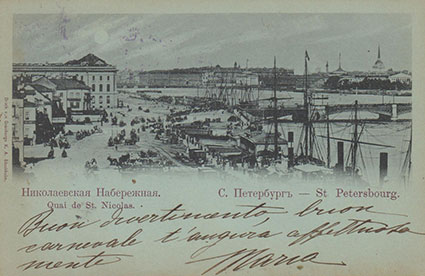 Николаевская Набережная.
С. Петербургъ — St Petersbourg.
Quai de St. Nicolas.
Buon divertimento, buon
carnevale t'augura affettuosa
mente
Maria